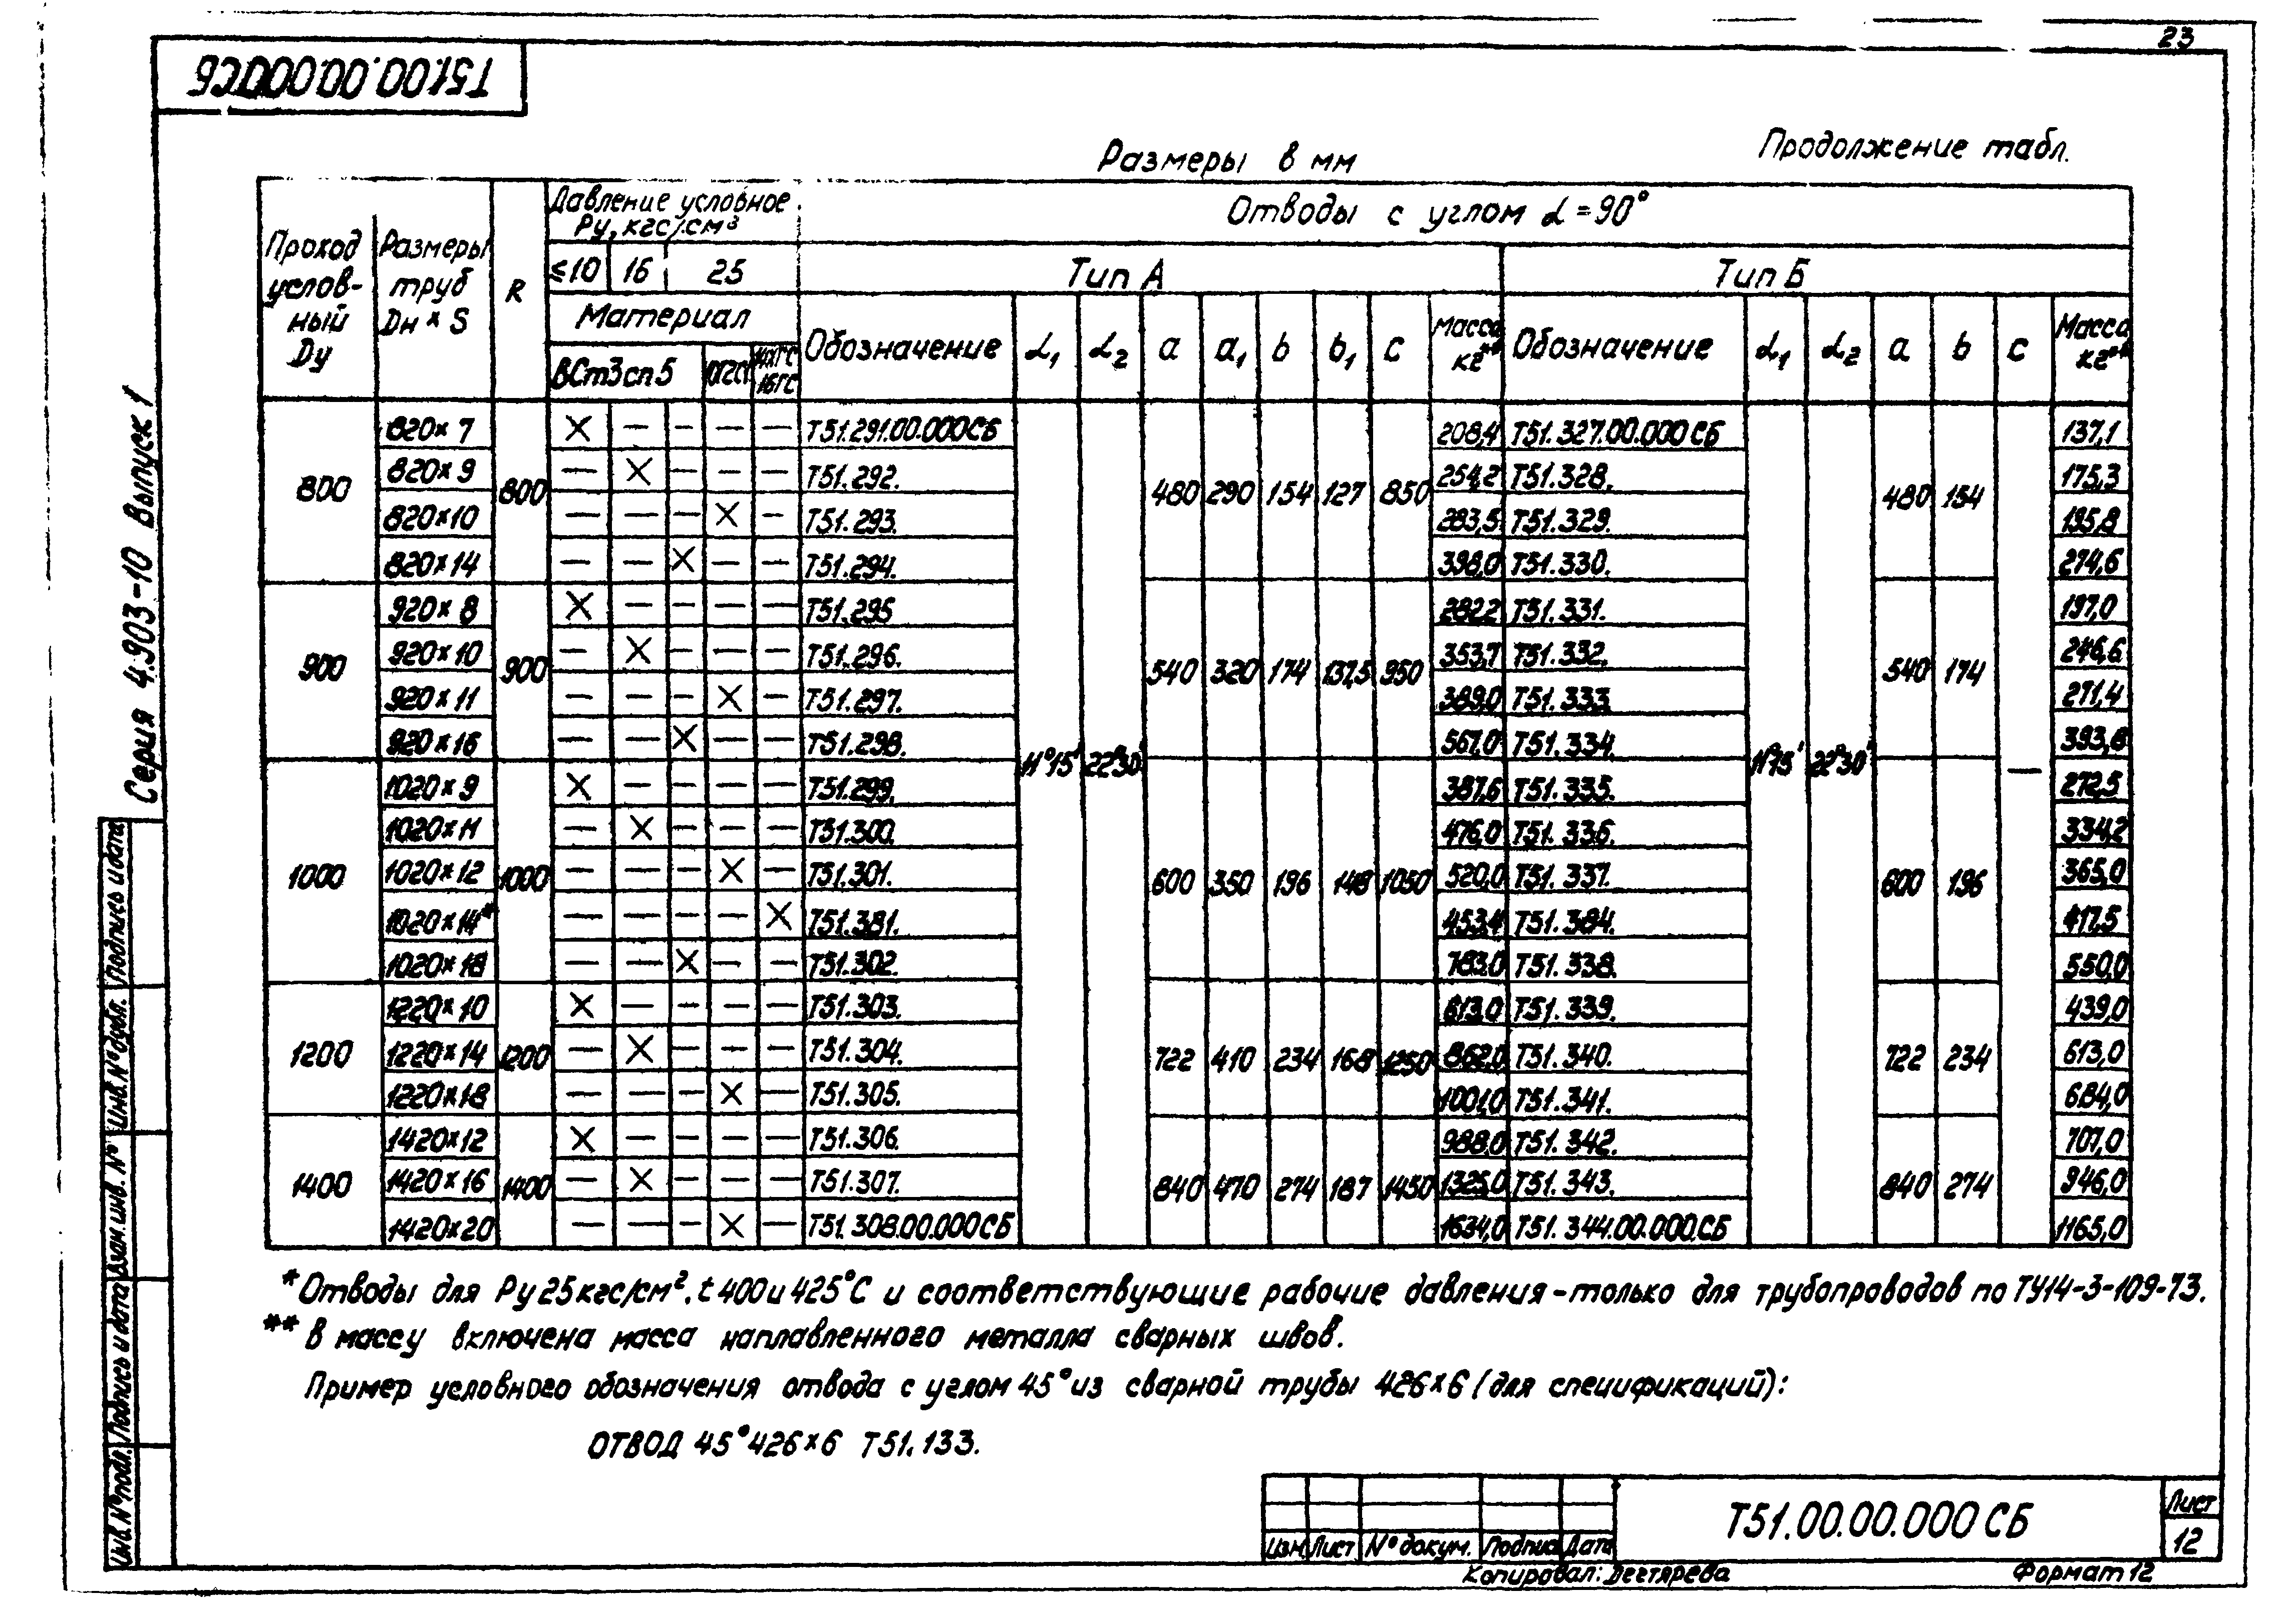 23
Т51.00.00.000СБ
Размеры в мм
Продолжение табл.
Проход условный Dу
Размеры труб Dн × S
R
Давление условное Ру, кгс/см³
Отводы с углом α = 90°
≤10 16 25
Тип А
Тип Б
Материал
ВСт3сп5
16ГС
Обозначение α₁ α₂ a a₁ b b₁ c Масса кг** Обозначение α₁ α₂ a b c Масса кг**
820×7 × — — — — Т51.291.00.000СБ 208,4 Т51.327.00.000СБ 137,1
820×9 — × — — — Т51.292. 254,2 Т51.328. 175,3
800 800 480 290 154 127 850 480 154
820×10 — — — × — Т51.293. 283,5 Т51.329. 195,8
820×14 — — × — — Т51.294. 398,0 Т51.330. 274,6
920×8 × — — — — Т51.295 282,2 Т51.331. 197,0
920×10 — × — — — Т51.296. 353,7 Т51.332. 246,6
900 900 540 320 174 137,5 950 540 174
920×11 — — — × — Т51.297. 389,0 Т51.333. 271,4
920×16 — — × — — Т51.298. 567,0 Т51.334. 393,8
11°15' 22°30' 11°15' 22°30' —
1020×9 × — — — — Т51.299. 387,6 Т51.335. 272,5
1020×11 — × — — — Т51.300. 476,0 Т51.336. 334,2
1020×12 — — — × — Т51.301. 520,0 Т51.337. 365,0
1000 1000 600 350 196 148 1050 600 196
1020×14* — — — — × Т51.381. 453,4 Т51.384. 417,5
1020×18 — — × — — Т51.302. 783,0 Т51.338. 550,0
1220×10 × — — — — Т51.303. 613,0 Т51.339. 439,0
1200 1220×14 1200 — × — — — Т51.304. 722 410 234 168 1250 862,0 Т51.340. 722 234 613,0
1220×18 — — — × — Т51.305. 1001,0 Т51.341. 684,0
1420×12 × — — — — Т51.306. 988,0 Т51.342. 707,0
1400 1420×16 1400 — × — — — Т51.307. 840 470 274 187 1450 1325,0 Т51.343. 840 274 946,0
1420×20 — — — × — Т51.308.00.000СБ 1634,0 Т51.344.00.000СБ 1165,0
* Отводы для Ру 25 кгс/см², t 400 и 425°С и соответствующие рабочие давления - только для трубопроводов по ТУ14-3-109-73.
** В массу включена масса наплавленного металла сварных швов.
Пример условного обозначения отвода с углом 45° из сварной трубы 426×6 (для спецификаций):
ОТВОД 45° 426×6 Т51.133.
Серия 4.903-10 Выпуск 1
Инв. № подл. Подпись и дата Взам. инв. № Инв. № дубл. Подпись и дата
Изм Лист № докум. Подпись Дата
Т51.00.00.000 СБ
Лист
12
Копировал: Дегтярева
Формат 12